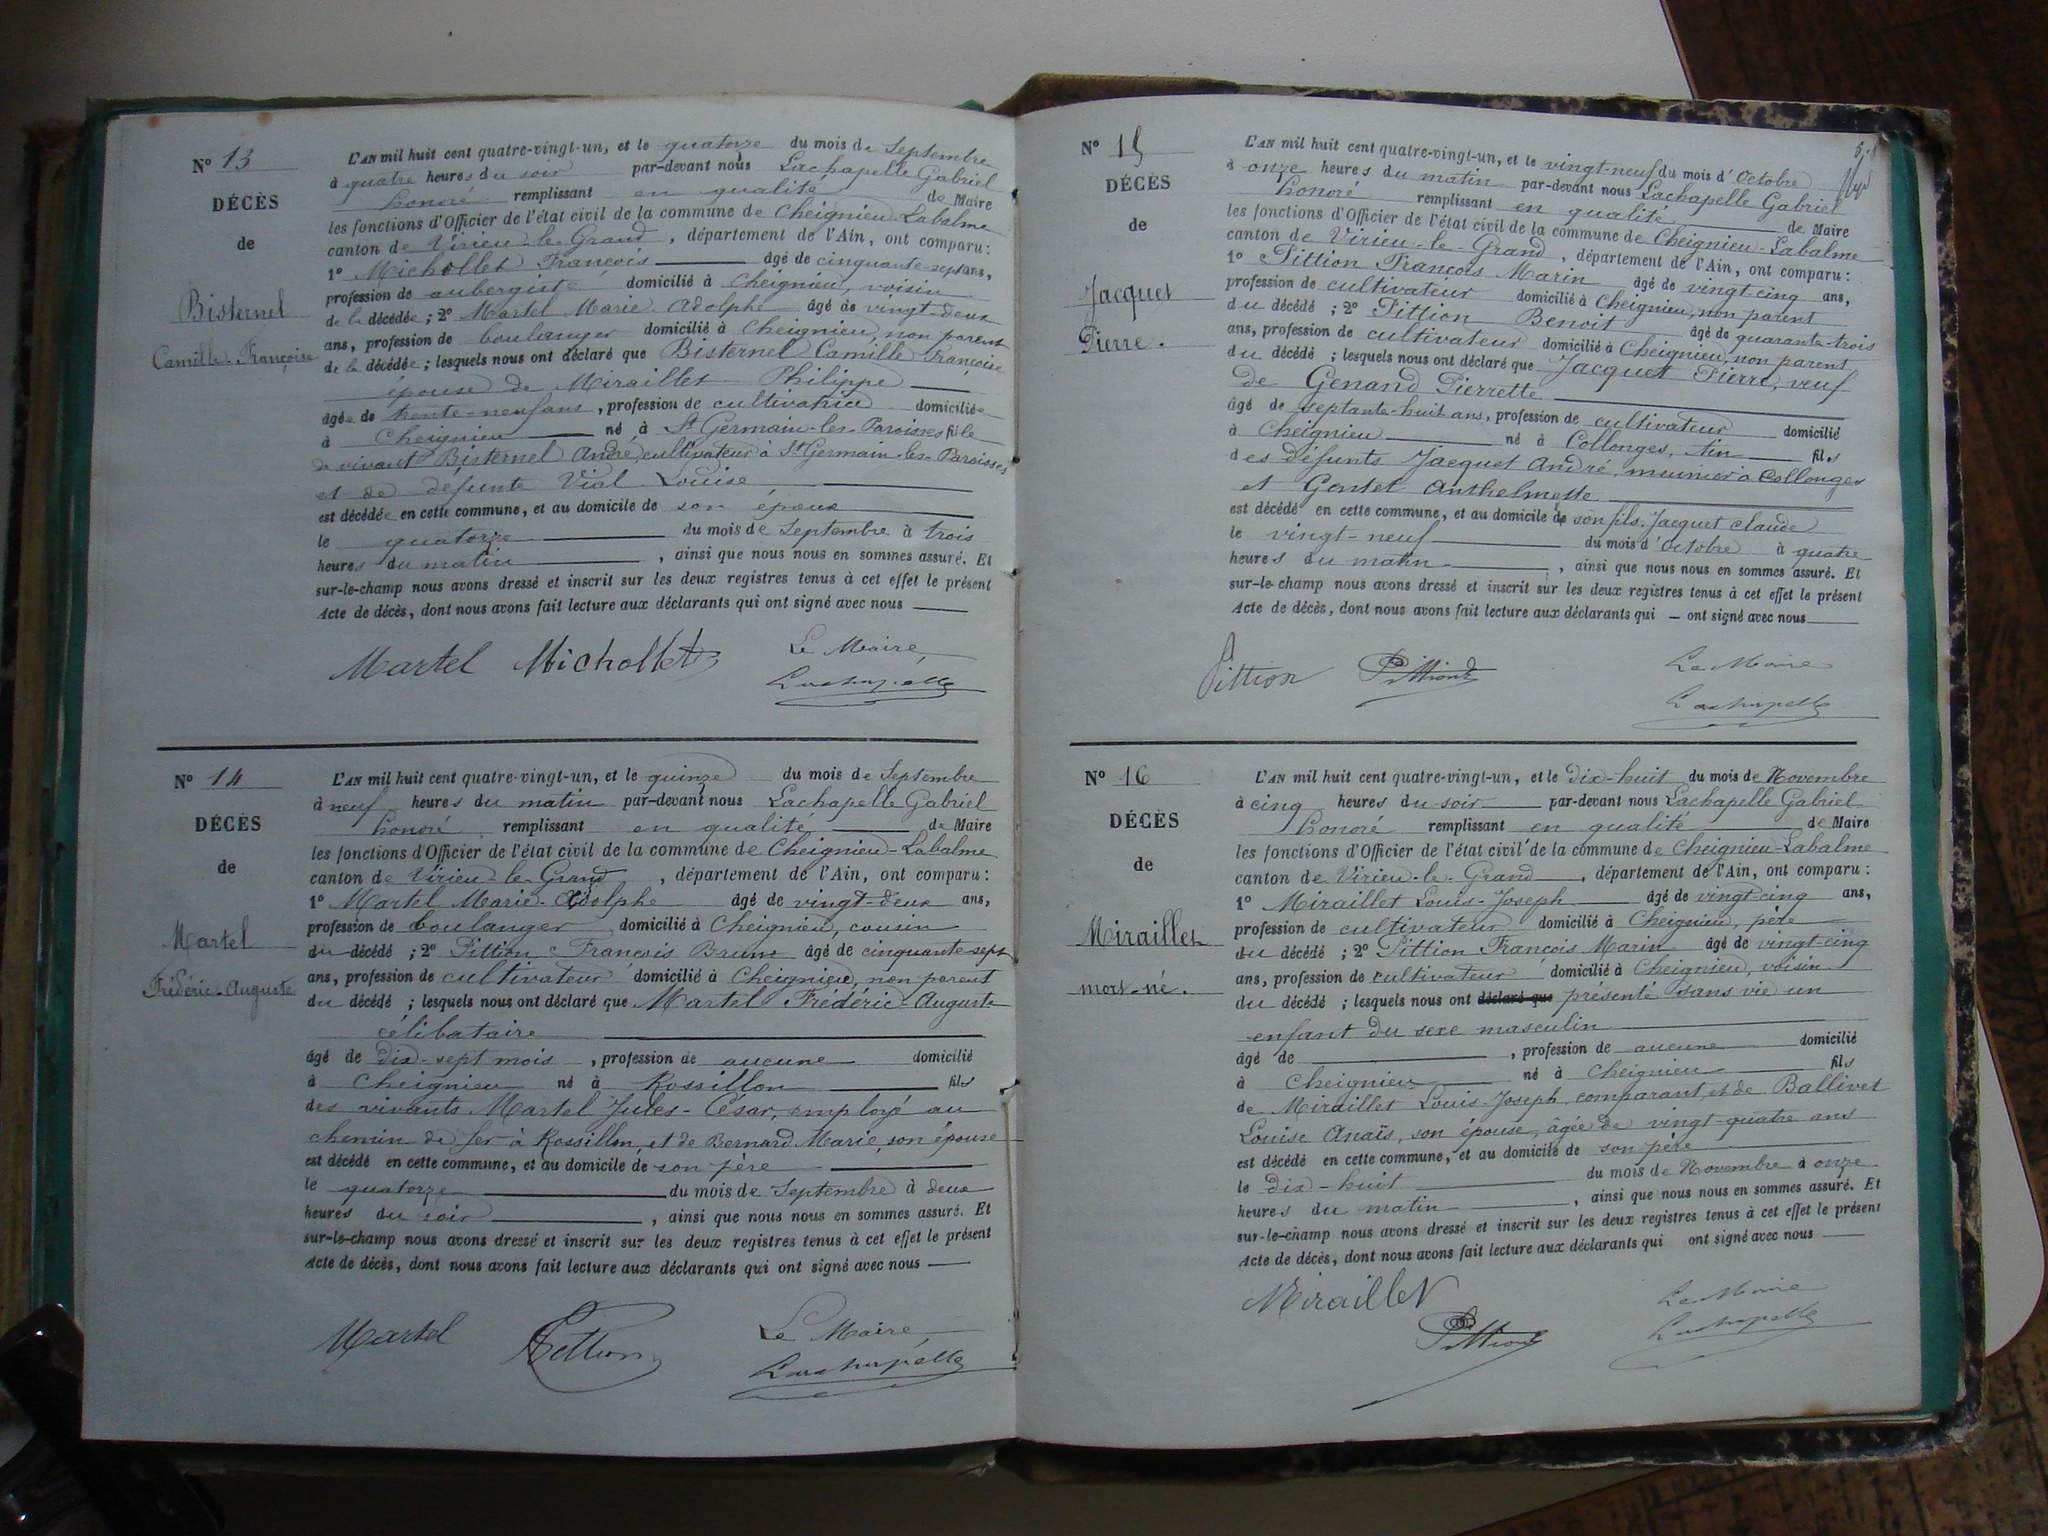 N° 13
DÉCÈS
de
Bisternel
Camille-Françoise
L'AN mil huit cent quatre-vingt-un, et le quatorze du mois de Septembre
à quatre heures du soir par-devant nous Lachapelle Gabriel
honoré remplissant en qualité de Maire
les fonctions d'Officier de l'état civil de la commune de Cheignieu-Labalme
canton de Virieu-le-Grand, département de l'Ain, ont comparu:
1° Michollet François âgé de cinquante-sept ans,
profession de aubergiste domicilié à Cheignieu, voisin
de la décédée; 2° Martel Marie-Adolphe âgé de vingt-deux
ans, profession de boulanger domicilié à Cheignieu, non parent
de la décédée; lesquels nous ont déclaré que Bisternel Camille Françoise
épouse de Miraillet Philippe
âgée de trente-neuf ans, profession de cultivatrice domiciliée
à Cheignieu né à St Germain-les-Paroisses fille
de vivant Bisternel André, cultivateur à St Germain-les-Paroisses
et de défunte Vial Louise
est décédée en cette commune, et au domicile de son époux
le quatorze du mois de Septembre à trois
heures du matin, ainsi que nous nous en sommes assuré. Et
sur-le-champ nous avons dressé et inscrit sur les deux registres tenus à cet effet le présent
Acte de décès, dont nous avons fait lecture aux déclarants qui ont signé avec nous
Martel Michollet Le Maire
Lachapelle
N° 14
DÉCÈS
de
Martel
Frédéric-Auguste
L'AN mil huit cent quatre-vingt-un, et le quinze du mois de Septembre
à neuf heures du matin par-devant nous Lachapelle Gabriel
honoré remplissant en qualité de Maire
les fonctions d'Officier de l'état civil de la commune de Cheignieu-Labalme
canton de Virieu-le-Grand, département de l'Ain, ont comparu:
1° Martel Marie-Adolphe âgé de vingt-deux ans,
profession de boulanger domicilié à Cheignieu, cousin
du décédé; 2° Pittion François Brum âgé de cinquante-sept
ans, profession de cultivateur domicilié à Cheignieu, non parent
du décédé; lesquels nous ont déclaré que Martel Frédéric-Auguste
célibataire
âgé de dix-sept mois, profession de aucune domicilié
à Cheignieu né à Rossillon fils
des vivants Martel Jules-César, employé au
chemin de fer à Rossillon, et de Bernard Marie, son épouse
est décédé en cette commune, et au domicile de son père
le quatorze du mois de Septembre à deux
heures du soir, ainsi que nous nous en sommes assuré. Et
sur-le-champ nous avons dressé et inscrit sur les deux registres tenus à cet effet le présent
Acte de décès, dont nous avons fait lecture aux déclarants qui ont signé avec nous
Martel Pittion Le Maire
Lachapelle
N° 15
DÉCÈS
de
Jacquet
Pierre.
L'AN mil huit cent quatre-vingt-un, et le vingt-neuf du mois d'Octobre
à onze heures du matin par-devant nous Lachapelle Gabriel
honoré remplissant en qualité de Maire
les fonctions d'Officier de l'état civil de la commune de Cheignieu-Labalme
canton de Virieu-le-Grand, département de l'Ain, ont comparu:
1° Pittion François Marin âgé de vingt-cinq ans,
profession de cultivateur domicilié à Cheignieu, non parent
du décédé; 2° Pittion Benoit âgé de quarante-trois
ans, profession de cultivateur domicilié à Cheignieu, non parent
du décédé; lesquels nous ont déclaré que Jacquet Pierre, veuf
de Genand Pierrette
âgé de septante-huit ans, profession de cultivateur domicilié
à Cheignieu né à Collonges, Ain fils
des défunts Jacquet André, meunier à Collonges
et Gentet Anthelmette
est décédé en cette commune, et au domicile de son fils, Jacquet Claude
le vingt-neuf du mois d'Octobre à quatre
heures du matin, ainsi que nous nous en sommes assuré. Et
sur-le-champ nous avons dressé et inscrit sur les deux registres tenus à cet effet le présent
Acte de décès, dont nous avons fait lecture aux déclarants qui ont signé avec nous
Pittion Pittion Le Maire
Lachapelle
N° 16
DÉCÈS
de
Miraillet
mort-né.
L'AN mil huit cent quatre-vingt-un, et le dix-huit du mois de Novembre
à cinq heures du soir par-devant nous Lachapelle Gabriel
honoré remplissant en qualité de Maire
les fonctions d'Officier de l'état civil de la commune de Cheignieu-Labalme
canton de Virieu-le-Grand, département de l'Ain, ont comparu:
1° Miraillet Louis-Joseph âgé de vingt-cinq ans,
profession de cultivateur domicilié à Cheignieu, père
du décédé; 2° Pittion François Marin âgé de vingt-cinq
ans, profession de cultivateur domicilié à Cheignieu, voisin
du décédé; lesquels nous ont déclaré que présenté sans vie un
enfant du sexe masculin
âgé de , profession de aucune domicilié
à Cheignieu né à Cheignieu fils
de Miraillet Louis-Joseph, comparant, et de Ballivet
Louise Anaïs, son épouse, âgée de vingt-quatre ans
est décédé en cette commune, et au domicile de son père
le dix-huit du mois de Novembre à onze
heures du matin, ainsi que nous nous en sommes assuré. Et
sur-le-champ nous avons dressé et inscrit sur les deux registres tenus à cet effet le présent
Acte de décès, dont nous avons fait lecture aux déclarants qui ont signé avec nous
Miraillet Pittion Le Maire
Lachapelle